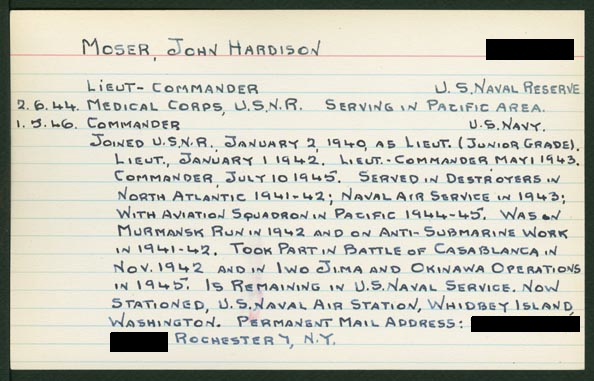 MOSER, JOHN HARDISON
LIEUT-COMMANDER U.S. NAVAL RESERVE
2.6.44. MEDICAL CORPS, U.S.N.R. SERVING IN PACIFIC AREA.
1.5.46. COMMANDER U.S. NAVY.
JOINED U.S.N.R. JANUARY 2, 1940, AS LIEUT. (JUNIOR GRADE).
LIEUT., JANUARY 1 1942. LIEUT.-COMMANDER MAY 1 1943.
COMMANDER, JULY 10 1945. SERVED IN DESTROYERS IN
NORTH ATLANTIC 1941-42; NAVAL AIR SERVICE IN 1943;
WITH AVIATION SQUADRON IN PACIFIC 1944-45. WAS ON
MURMANSK RUN IN 1942 AND ON ANTI-SUBMARINE WORK
IN 1941-42. TOOK PART IN BATTLE OF CASABLANCA IN
NOV. 1942 AND IN IWO JIMA AND OKINAWA OPERATIONS
IN 1945. IS REMAINING IN U.S. NAVAL SERVICE. NOW
STATIONED, U.S. NAVAL AIR STATION, WHIDBEY ISLAND,
WASHINGTON. PERMANENT MAIL ADDRESS:
ROCHESTER 7, N.Y.